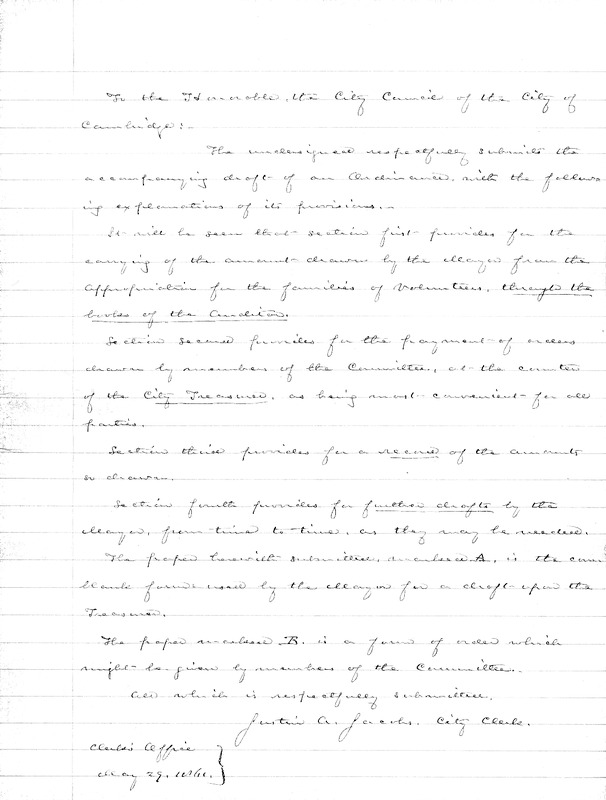 To the Honorable, the City Council of the City of
Cambridge:-
The undersigned respectfully submits the
accompanying draft of an Ordinance, with the follow-
ing explanations of its provisions.-
It will be seen that section first provides for the
carrying of the amount drawn by the Mayor from the
appropriation for the families of Volunteers, through the
books of the Auditor.
Section second provides for the payment of orders
drawn by members of the Committee, at the counter
of the City Treasurer, as being most convenient for all
parties.
Section third provides for a record of the amounts
so drawn.
Section fourth provides for further drafts by the
Mayor, from time to time, as they may be needed.
The paper herewith submitted, marked A, is the com
blank form used by the Mayor for a draft upon the
Treasurer.
The paper marked B. is a form of order which
might be given by members of the Committee.
All which is respectfully submitted.
Justin A. Jacobs. City Clerk.
Clerk's Office
May 29, 1861.